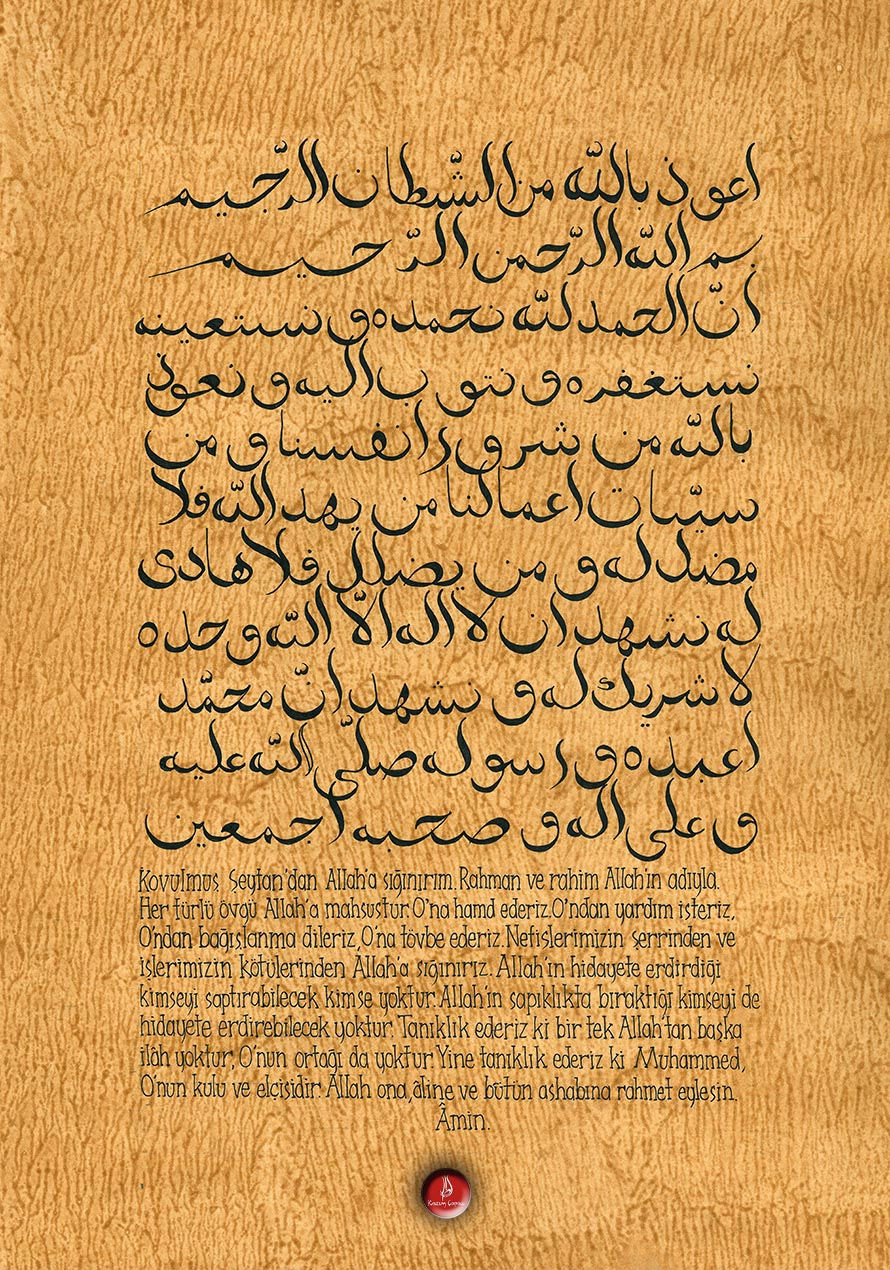 اعوذ بالله من الشّطان الرّجيم
بسم الله الرّحمن الرّحيم
انّ الحمد لله نحمده و نستعينه
نستغفره و نتوب اليه و نعوذ
بالله من شرور انفسنا و من
سيّبات اعمالنا من يهد الله فلا
مضل له و من يضلل فلا هادى
له نشهد ان لا اله الّا الله وحده
لا شريك له و نشهد انّ محمّد
اعبده و رسوله صلّى الله عليه
و على اله و صحبه اجمعين
Kovulmuş Şeytan'dan Allah'a sığınırım. Rahman ve rahim Allah'ın adıyla.
Her türlü övgü Allah'a mahsustur. O'na hamd ederiz. O'ndan yardım isteriz,
O'ndan bağışlanma dileriz, O'na tövbe ederiz. Nefislerimizin şerrinden ve
işlerimizin kötülerinden Allah'a sığınırız. Allah'ın hidayete erdirdiği
kimseyi saptırabilecek kimse yoktur. Allah'ın sapıklıkta bıraktığı kimseyi de
hidayete erdirebilecek yoktur. Tanıklık ederiz ki bir tek Allah'tan başka
ilâh yoktur, O'nun ortağı da yoktur. Yine tanıklık ederiz ki Muhammed,
O'nun kulu ve elçisidir. Allah ona, âline ve bütün ashabına rahmet eylesin.
Âmin.